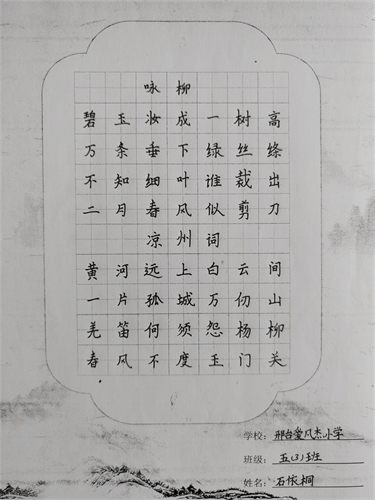 咏柳
碧玉妆成一树高
万条垂下绿丝绦
不知细叶谁裁出
二月春风似剪刀
凉州词
黄河远上白云间
一片孤城万仞山
羌笛何须怨杨柳
春风不度玉门关
学校：邢台爱风杰小学
班级：五(3)班
姓名：石依桐